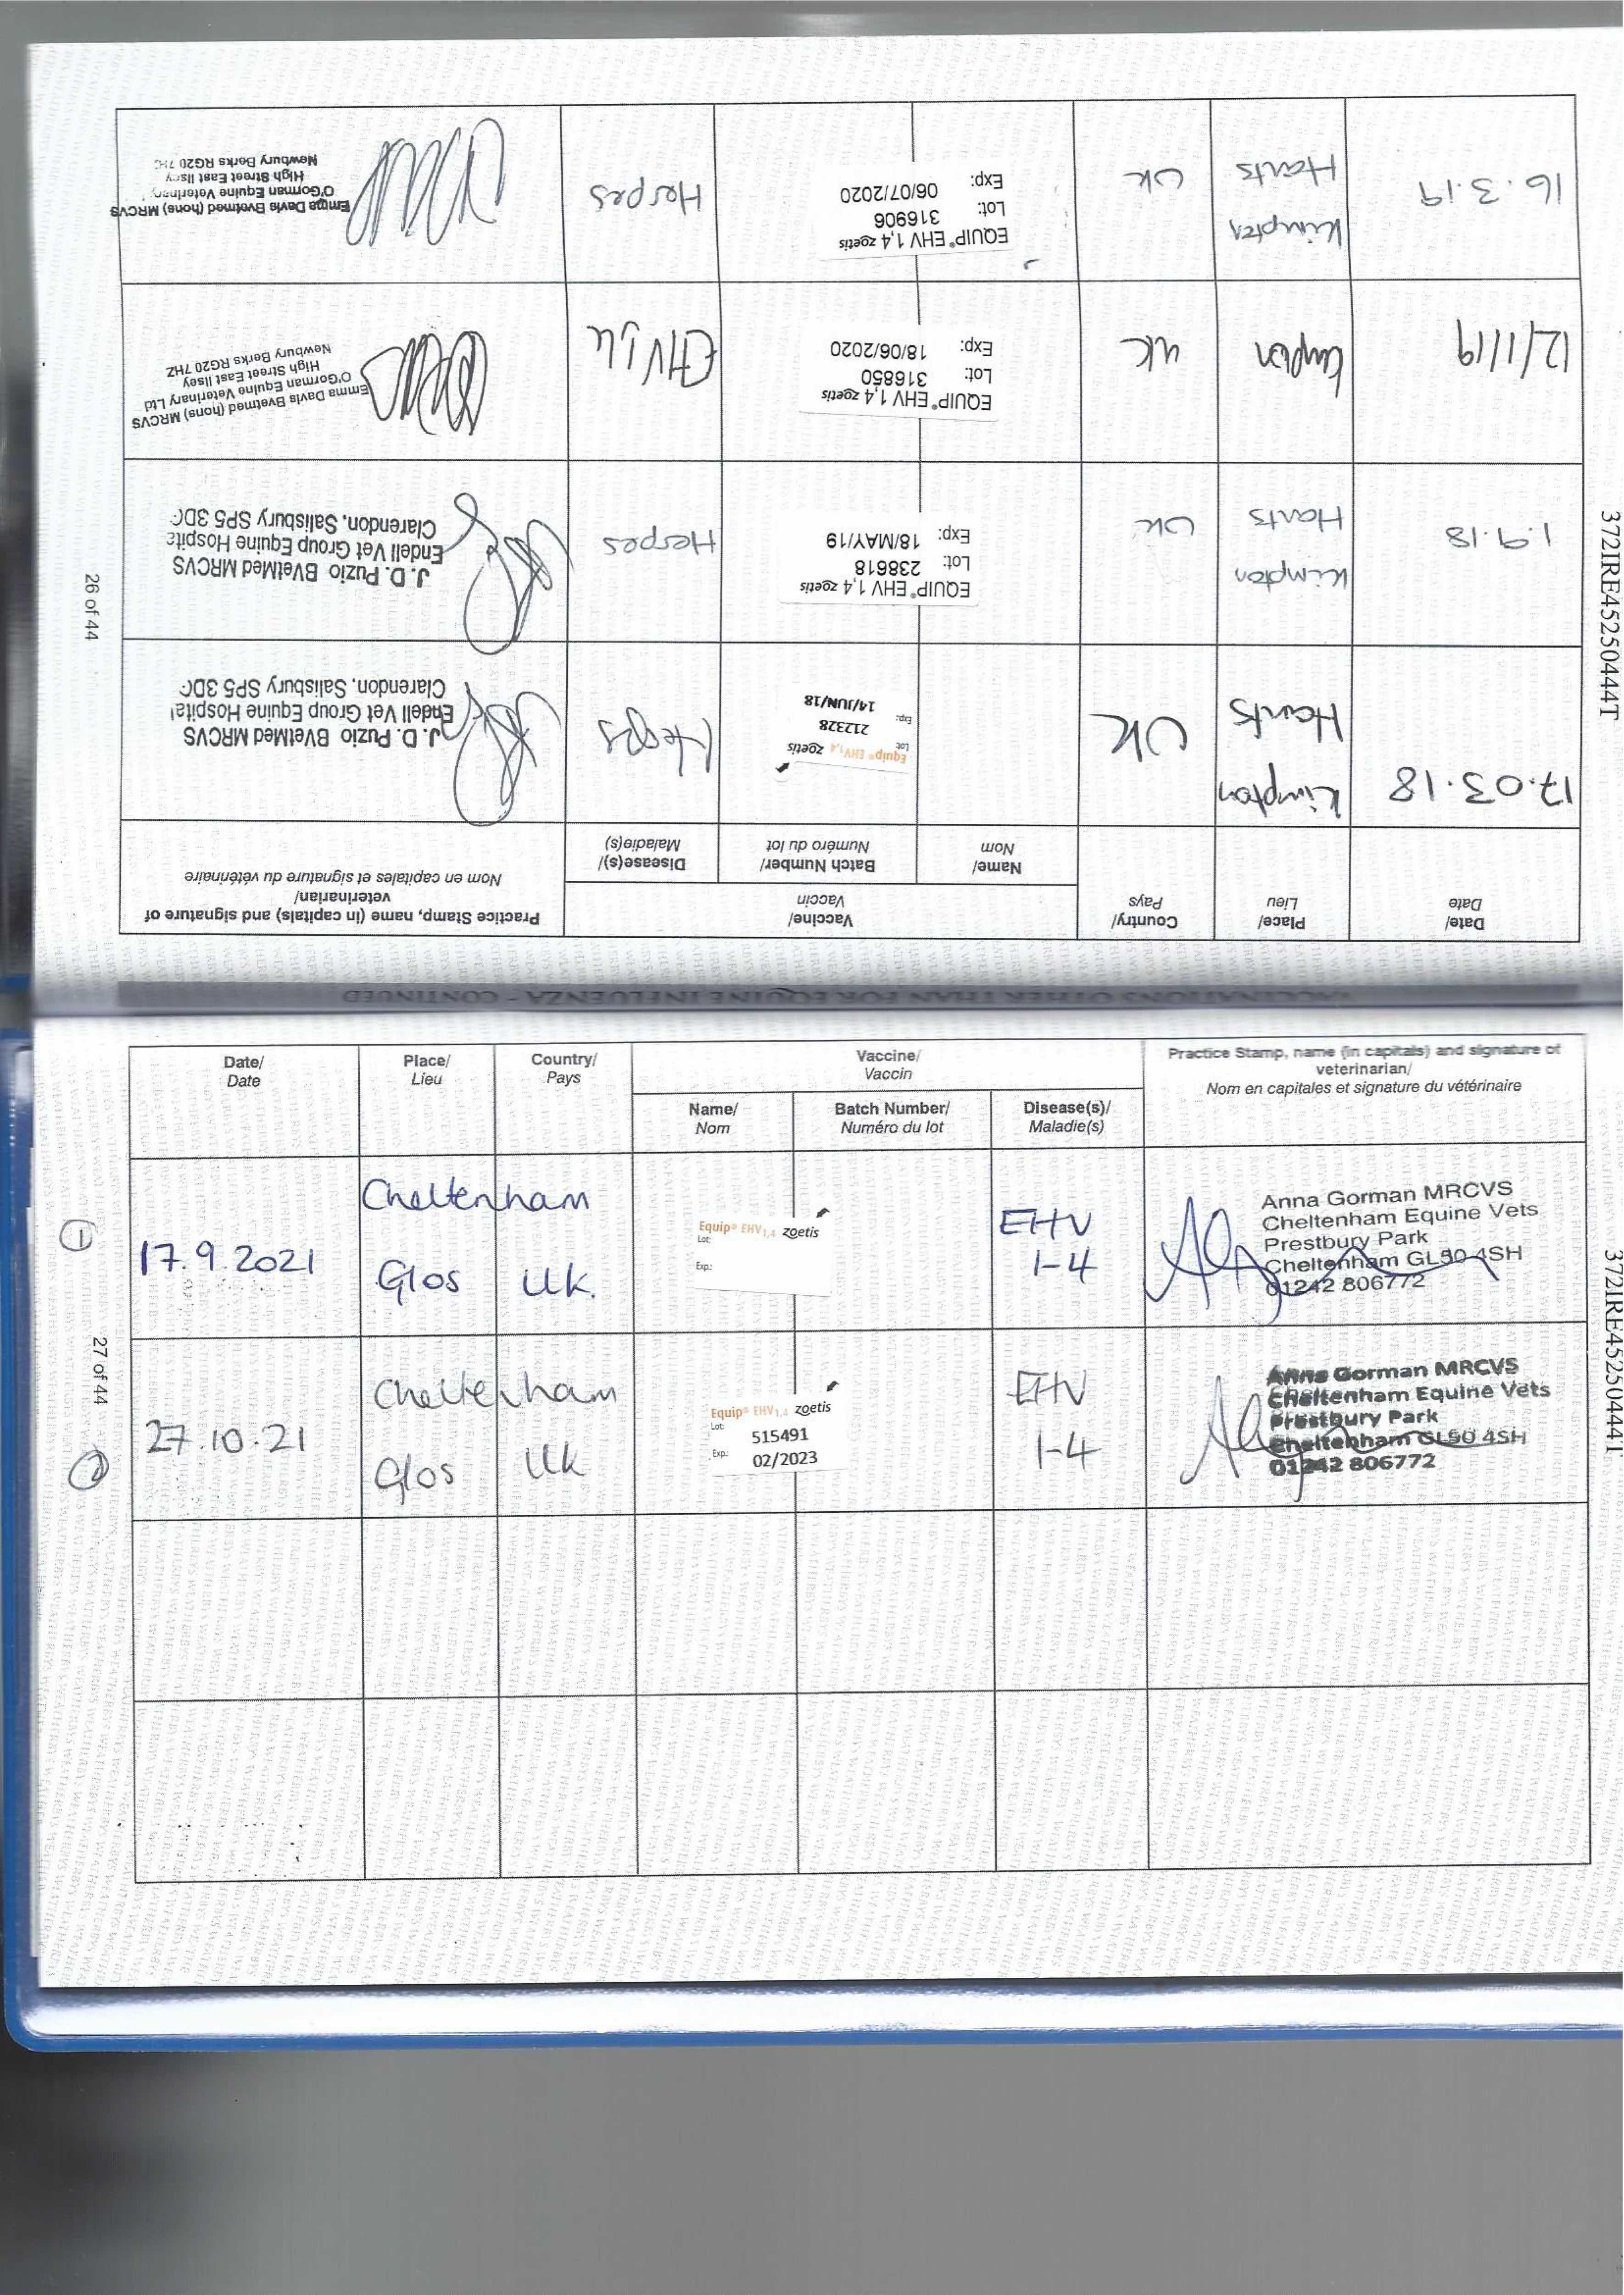 VACCINATIONS OTHER THAN FOR EQUINE INFLUENZA - CONTINUED
Date/
Date
Place/
Lieu
Country/
Pays
Vaccine/
Vaccin
Name/
Nom
Batch Number/
Numéro du lot
Disease(s)/
Maladie(s)
Practice Stamp, name (in capitals) and signature of
veterinarian/
Nom en capitales et signature du vétérinaire
17.03.18
Kimpton
Hants
UK
Equip® EHV 1,4 zoetis
Lot: 212328
Exp: 14/JUN/18
Herpes
J. D. Puzio BVetMed MRCVS
Endell Vet Group Equine Hospital
Clarendon, Salisbury SP5 3DG
1.9.18
Kimpton
Hants
UK
EQUIP® EHV 1,4 zoetis
Lot: 238618
Exp: 18/MAY/19
Herpes
J. D. Puzio BVetMed MRCVS
Endell Vet Group Equine Hospita
Clarendon, Salisbury SP5 3DG
12/1/19
Kimpton
UK
EQUIP® EHV 1,4 zoetis
Lot: 316850
Exp: 18/06/2020
EHV1,4
Emma Davis Bvetmed (hons) MRCVS
O'Gorman Equine Veterinary Ltd
High Street East Ilsey
Newbury Berks RG20 7HZ
16.3.19
Kimpton
Hants
UK
EQUIP® EHV 1,4 zoetis
Lot: 316906
Exp: 06/07/2020
Herpes
Emma Davis Bvetmed (hons) MRCVS
O'Gorman Equine Veterinary
High Street East Ilsey
Newbury Berks RG20
26 of 44
372IRE45250444T
Date/
Date
Place/
Lieu
Country/
Pays
Vaccine/
Vaccin
Name/
Nom
Batch Number/
Numéro du lot
Disease(s)/
Maladie(s)
Practice Stamp, name (in capitals) and signature of
veterinarian/
Nom en capitales et signature du vétérinaire
1
17.9.2021
Cheltenham
Glos UK.
Equip® EHV 1,4 zoetis
Lot:
Exp.:
EHV
1-4
Anna Gorman MRCVS
Cheltenham Equine Vets
Prestbury Park
Cheltenham GL50 4SH
01242 806772
2
27.10.21
Cheltenham
Glos UK
Equip® EHV 1,4 zoetis
Lot: 515491
Exp.: 02/2023
EHV
1-4
Anna Gorman MRCVS
Cheltenham Equine Vets
Prestbury Park
Cheltenham GL50 4SH
01242 806772
27 of 44
372IRE45250444T